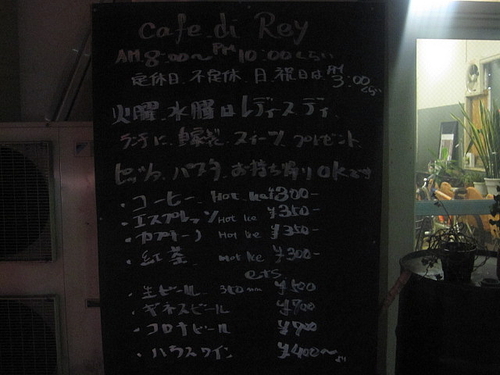 cafe di Rey
AM 8:00～PM 10:00くらい
定休日 不定休 日 祝日は PM 3:00 くらい
火曜 水曜日 レディスディ
ランチに 自家製 スイーツ プレゼント
ピッツァ パスタ お持ち帰り OKです
・コーヒー Hot Ice ¥300-
・エスプレッソ Hot Ice ¥350-
・カプチーノ Hot Ice ¥350-
・紅茶 Hot Ice ¥300-
etc
・生ビール 350 ¥500
・ギネスビール ¥700
・コロナビール ¥700
・ハウスワイン ¥400～